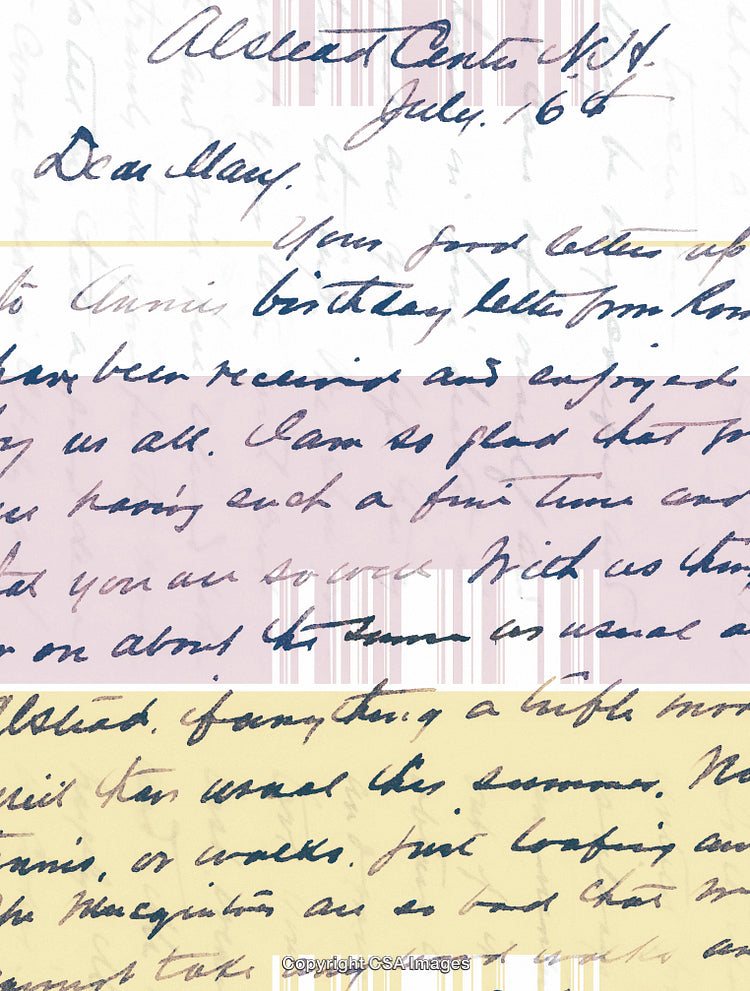 Alstead Center N.H.
July. 16th
Dear Mary.
Your good letters up
to Annies birthday letter from Rom
have been received and enjoyed
by us all. I am so glad that yo
are having such a fine time and
that you are so well With us thin
r on about the same as usual a
Alstead. if anything a trifle mor
than usual this summer. No
ennis, or walks. just loafing an
The are so bad that we
cannot take any good walks an
Copyright CSA Images